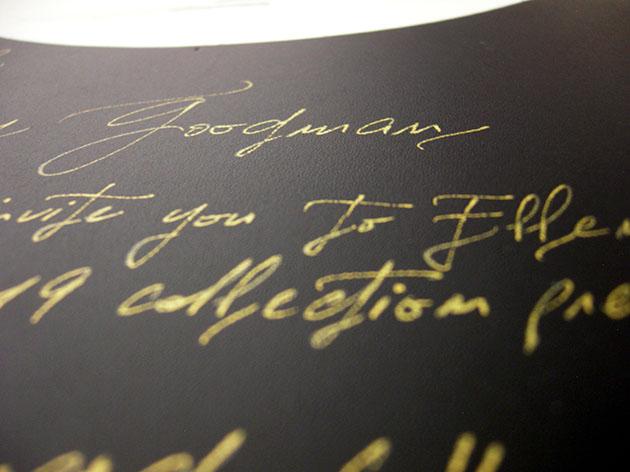 Goodman
invite you to Elle
19 collection pre